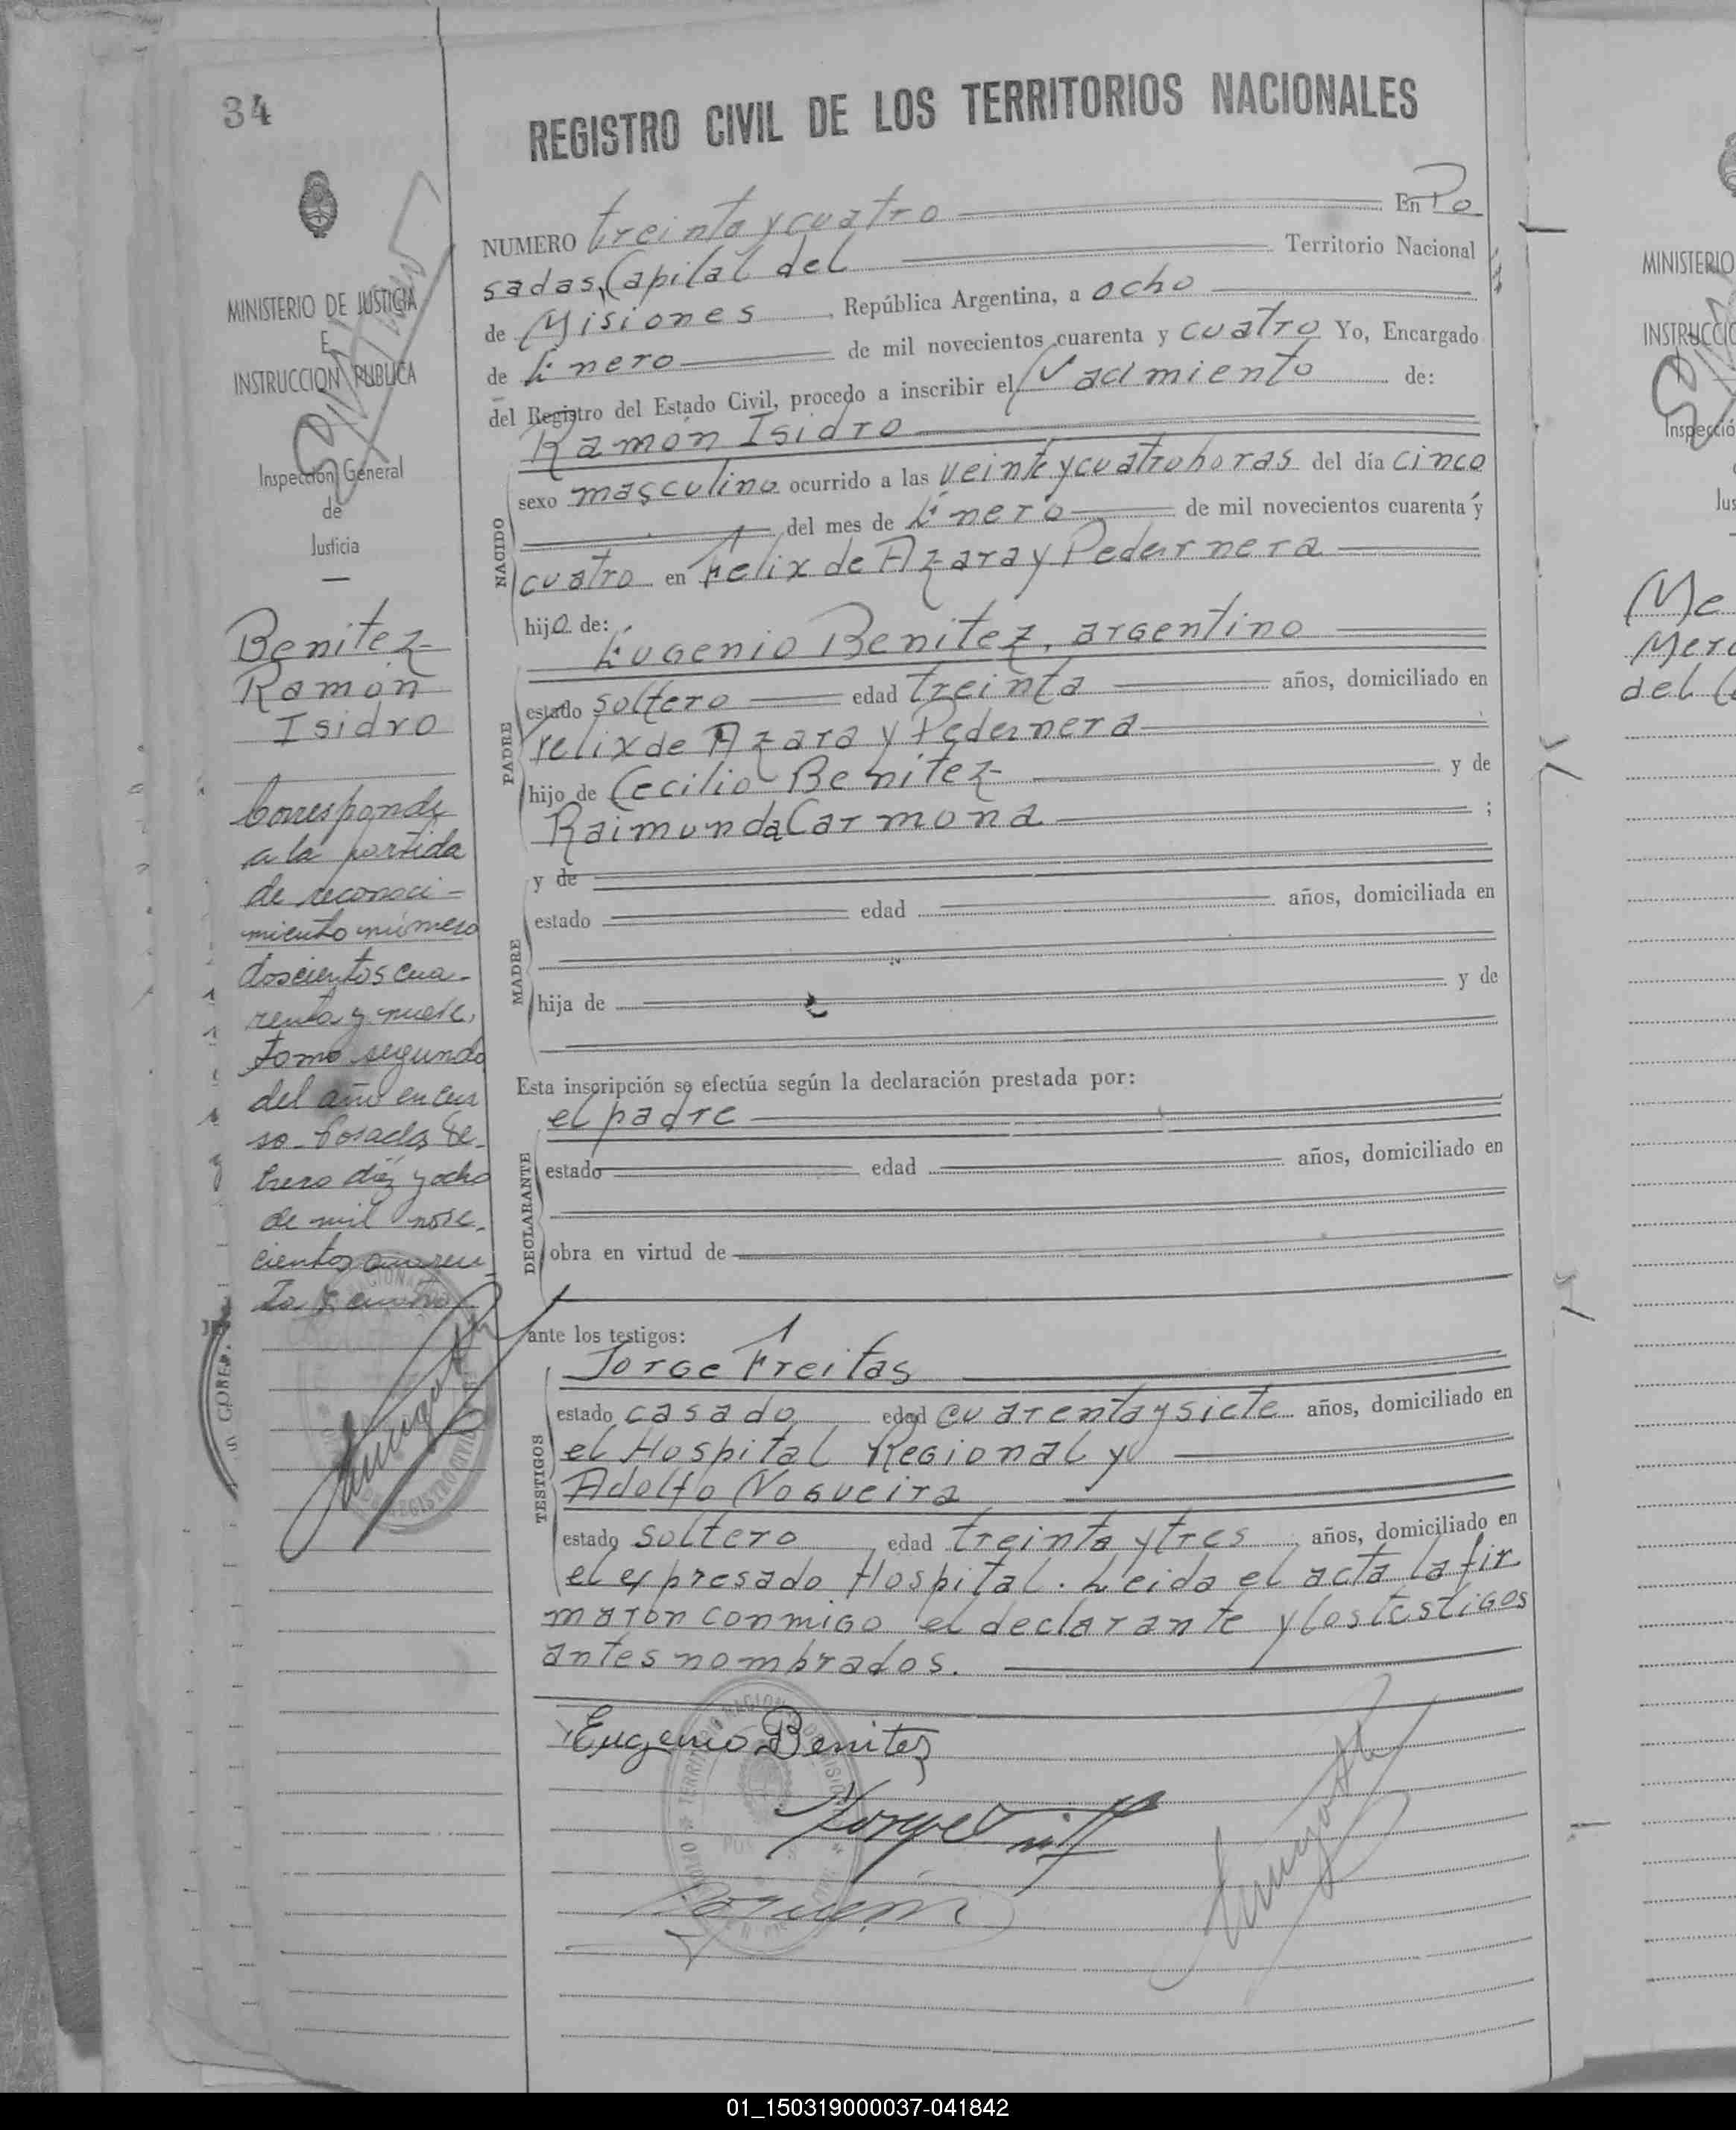 34
REGISTRO CIVIL DE LOS TERRITORIOS NACIONALES
MINISTERIO DE JUSTICIA
E
INSTRUCCION PUBLICA
Inspección General
de
Justicia
Benitez
Ramón
Isidro
Corresponde
a la partida
de reconoci-
miento número
doscientos cua-
renta y nueve,
tomo segundo
del año en cur
so. Posadas, Fe-
brero diéz y ocho
de mil nove-
cientos cuaren
ta y cuatro
NUMERO treinta y cuatro En Po
sadas, Capital del Territorio Nacional
de Misiones, República Argentina, a ocho
de Enero de mil novecientos cuarenta y cuatro Yo, Encargado
del Registro del Estado Civil, procedo a inscribir el Nacimiento de:
Ramón Isidro
NACIDO
sexo masculino ocurrido a las veinte y cuatro horas del día cinco
del mes de Enero de mil novecientos cuarenta y
cuatro en Felix de Azara y Pedernera
hijo de:
PADRE
Eugenio Benitez, argentino
estado soltero edad treinta años, domiciliado en
Felix de Azara y Pedernera
hijo de Cecilio Benitez y de
Raimunda Carmona ;
y de
MADRE
estado edad años, domiciliada en
hija de y de
Esta inscripción se efectúa según la declaración prestada por:
el padre
DECLARANTE
estado edad años, domiciliado en
obra en virtud de
ante los testigos:
TESTIGOS
Jorge Freitas
estado casado edad cuarenta y siete años, domiciliado en
el Hospital Regional y
Adolfo Nogueira
estado soltero edad treinta y tres años, domiciliado en
el expresado Hospital. Leida el acta la fir
maron conmigo el declarante y los testigos
antes nombrados.
Eugenio Benitez
MINISTERIO
INSTRUCCIO
Inspecció
Jus
Me
Merc
del C
01_150319000037-041842